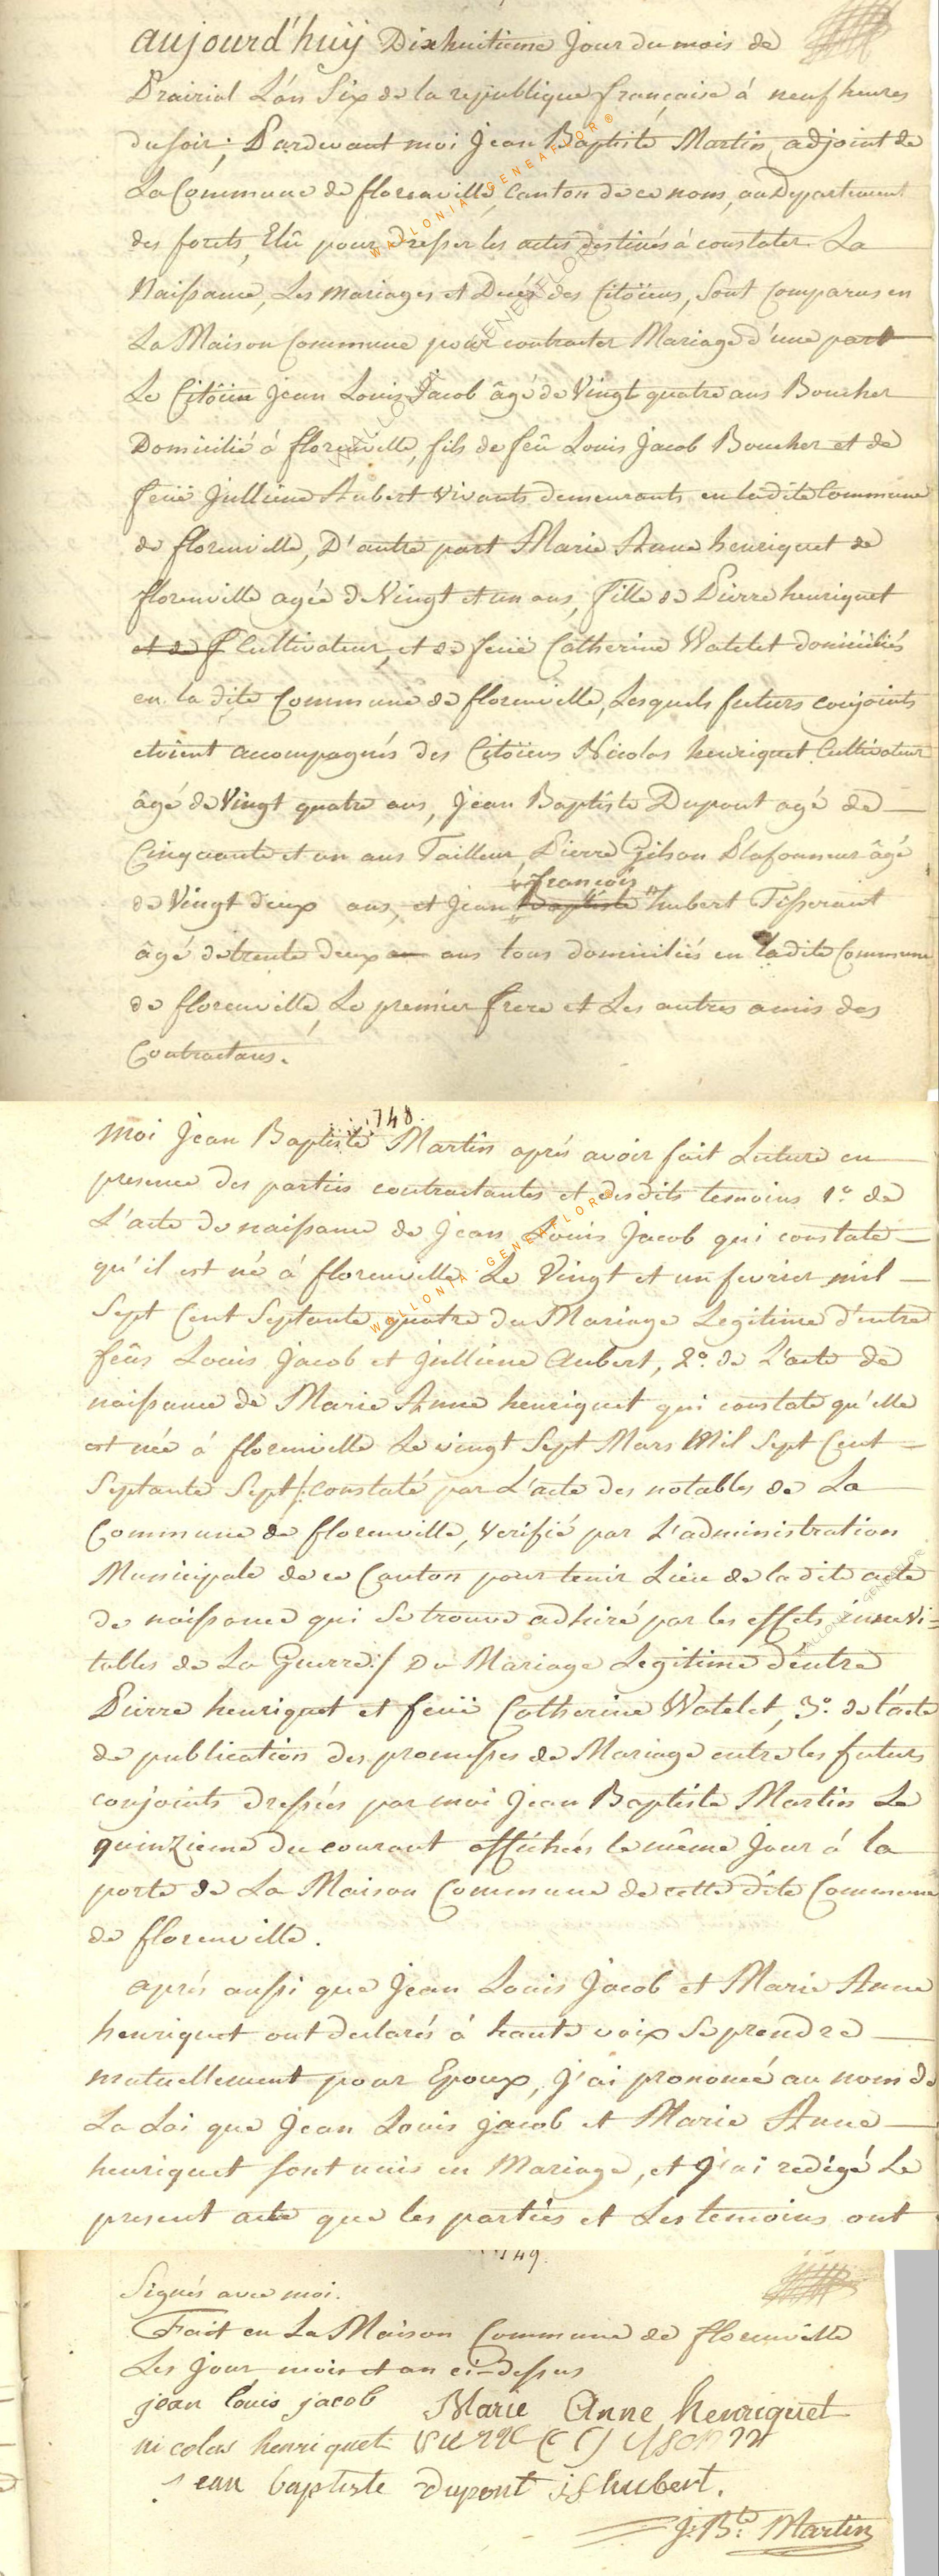 aujourd'huÿ Dixhuitieme Jour du mois de
Prairial L'an Six de la republique française á neuf heures
du soir; Pardevant moi Jean Baptiste Martin, adjoint de
La Commune de florenville, Canton de ce nom, au Departement
des forets, Elû pour dresser les actes destinés à constater La
Naissance, Les Mariages et Decès des Citöiens, sont Comparus en
La Maison Commune pour contracter Mariage d'une part
Le Citöien Jean Louis Jacob âgé de Vingt quatre ans Boucher
Domicilié á florenville, fils de feû Louis Jacob Boucher et de
feuë Jullienne Aubert vivants demeurants en ladite Commune
de florenville, D'autre part Marie Anne henriquet de
florenville agée de Vingt et un ans, fille de Pierre henriquet
et de f Cultivateur, et de feuë Catherine Watelet domiciliés
en la dite Commune de florenville, Lesquels futurs conjoints
etoient accompagnés des Citöiens Nicolas henriquet Cultivateur
âgé de Vingt quatre ans, Jean Baptiste Dupont agé de
Cinquante et un ans Tailleur, Pierre Gilson Plafonneur âgé
françois
de Vingt deux ans, et Jean Baptiste hubert Tisserant
âgé de trente deux an ans tous domiciliés en ladite Commune
de florenville, Le premier frere et Les autres amis des
Contractans.
748.
Moi Jean Baptiste Martin aprés avoir fait Lecture en
presence des parties contractantes et desdits temoins 1.° de
L'acte de naissance de Jean Louis Jacob qui constate
qu'il est né á florenville Le Vingt et un fevrier mil
Sept Cent Septante quatre du Mariage Legitime d'entre
feûs Louis Jacob et Jullienne Aubert, 2.° de L'acte de
naissance de Marie Anne henriquet qui constate qu'elle
est née á florenville Le vingt Sept Mars Mil Sept Cent
Septante Sept/: constaté par L'acte des notables de La
Commune de florenville, verifié par L'administration
Municipale de ce Canton pour tenir Lieu de la dite acte
de naissance qui se trouve adhiré par les effets inevi=
tables de La Guerre:/ Du Mariage Legitime d'entre
Pierre henriquet et feuë Catherine Watelet, 3.° de l'acte
de publication des promesses de Mariage entre les futurs
conjoints dressées par moi Jean Baptiste Martin Le
quinzieme du courant affichées le même Jour á la
porte de La Maison Commune de cette dite Commune
de florenville.
aprés aussi que Jean Louis Jacob et Marie Anne
henriquet ont declarés á haute voix se prendre
mutuellement pour Epoux, J'ai prononcé au nom de
La Loi que Jean Louis Jacob et Marie Anne
henriquet sont unis en Mariage, et j'ai redigé Le
present acte que les parties et Les temoins ont
149.
Signés avec moi.
Fait en La Maison Commune de florenville
Les Jour mois et an ci-dessus
jean louis jacob Marie Anne henriquet
nicolas henriquet
jean baptiste dupont hubert.
J: B.te Martin
WALLONIA GENEAFLOR®
WALLONIA GENEAFLOR®